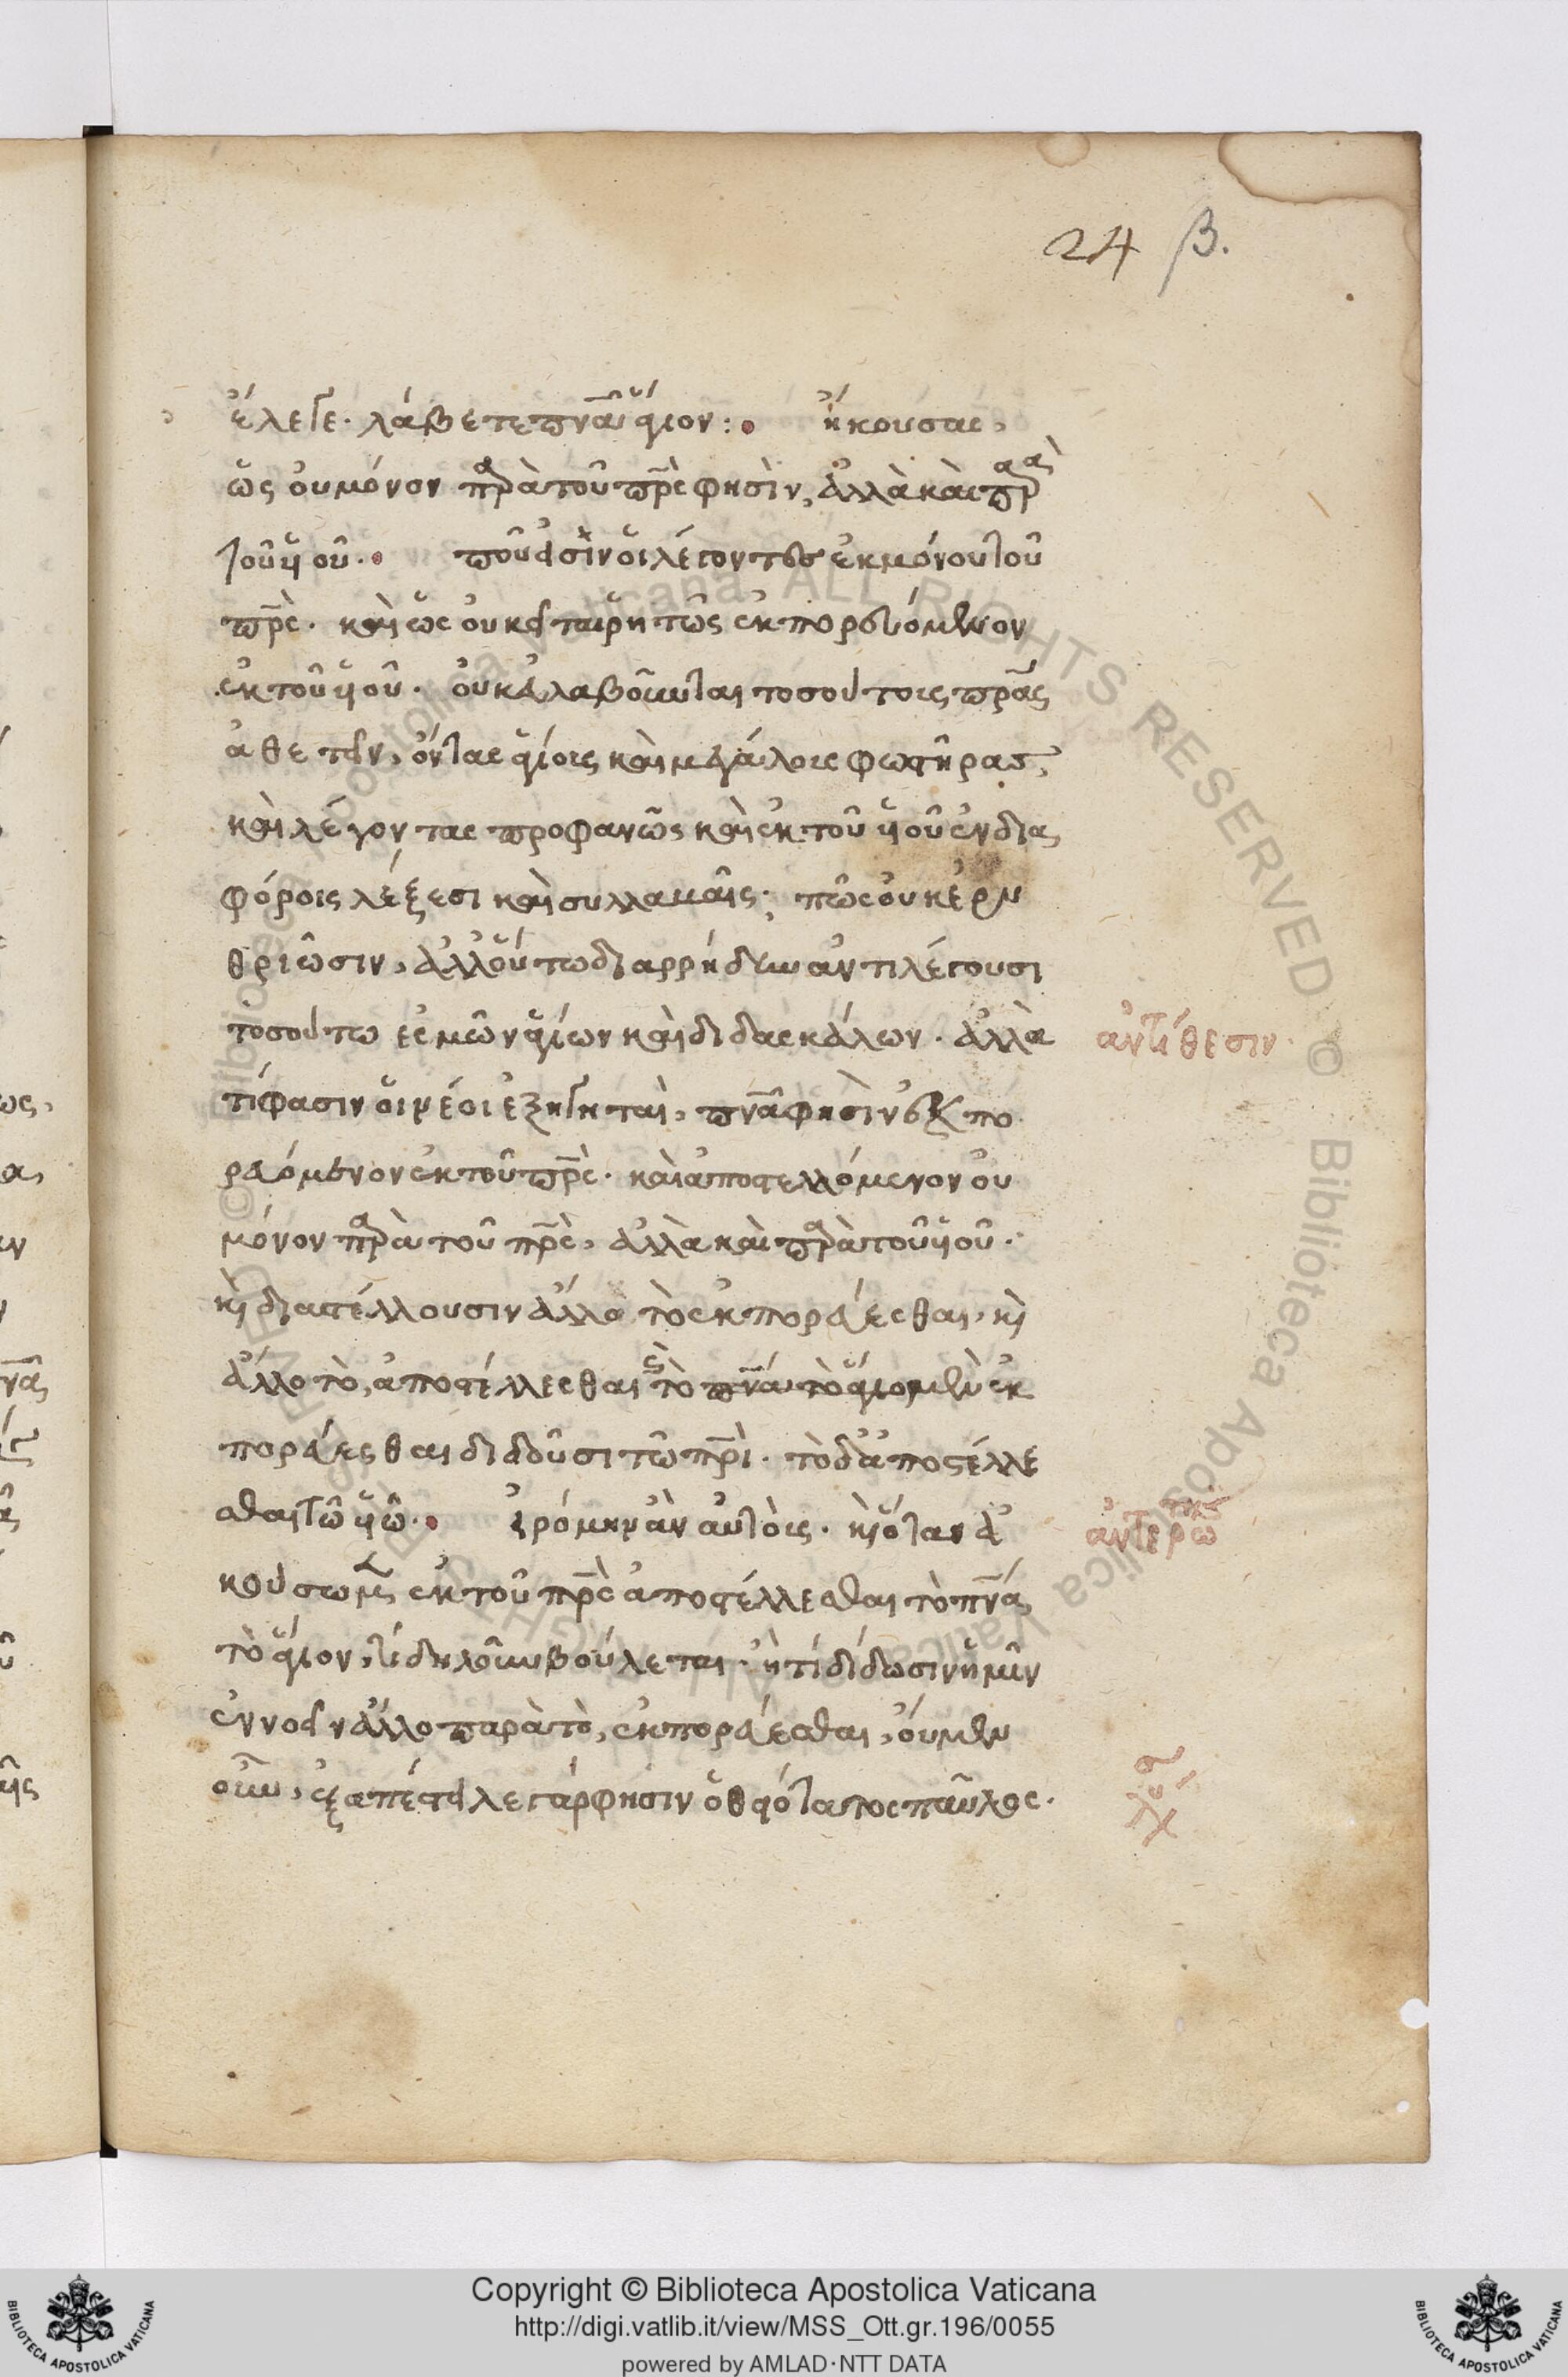 24 β.
ἔλεγε· λάβετε πνᾶ ἅγιον: ἤκουσας,
ὡς οὐ μόνον παρὰ τοῦ πρς φησὶν, ἀλλὰ καὶ παρὰ
τοῦ ὑοῦ· ποῦ εἰσὶν οἱ λέγοντες ἐκ μόνου τοῦ
πρς· καὶ ὡς οὐκ εἴρηται πῶς ἐκπορευόμενον
ἐκ τοῦ ὑοῦ· οὐκ εὐλαβοῦνται τοσούτους πρας
ἀθετεῖν, ὄντας ἁγίους καὶ μεγάλους φωστῆρας,
καὶ λέγοντας προφανῶς καὶ ἐκ τοῦ ὑοῦ ἐν δια
φόροις λέξεσι καὶ συλλαβαῖς· πῶς οὐκ ἐρυ
θριῶσιν, ἀλλ' οὕτω διαρρήδην ἀντιλέγουσι
τοσούτων ἁγίων καὶ διδασκάλων· ἀλλὰ
ἀντίθεσιν
τί φασιν οἱ νέοι ἐξηγηταὶ, πνᾶ φησὶν ἐκπο
ρευόμενον ἐκ τοῦ πρς· καὶ ἀποστελλόμενον οὐ
μόνον παρὰ τοῦ πρς, ἀλλὰ καὶ παρὰ τοῦ ὑοῦ·
κὶ διαστέλλουσιν ἄλλο τὸ ἐκπορεύεσθαι, κὶ
ἄλλο τὸ, ἀποστέλλεσθαι τὸ πνᾶ τὸ ἅγιον μὲν ἐκ
πορεύεσθαι διδοῦσι τῶ πρὶ· τὸ δ' ἀποστέλλε
σθαι τῶ ὑῶ· ἐρόμην ἂν αὐτοὺς· κὶ ὅταν ἀ
κούσωμεν ἐκ τοῦ πρς ἀποστέλλεσθαι τὸ πνᾶ
τὸ ἅγιον, τί δηλοῦν βούλεται· ἢ τί δίδωσιν ἡμῖν
ἐννοεῖν ἄλλο παρὰ τὸ, ἐκπορεύεσθαι, οὐ μὲν
οὖν, ἐξαπέστειλε γάρ φησιν ὁ θειότατος παῦλος·
Copyright © Biblioteca Apostolica Vaticana
http://digi.vatlib.it/view/MSS_Ott.gr.196/0055
powered by AMLAD·NTT DATA
BIBLIOTECA APOSTOLICA VATICANA
BIBLIOTECA APOSTOLICA VATICANA